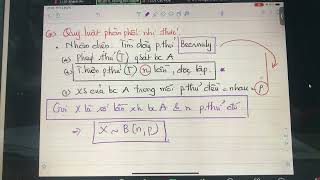 Quy luật phân phối nhị thức.
Nhận diện: Tìm dãy p.thử Becnuly
Phép thử (T) qsát bc A
T.hiện p.thử (T) (n) lần, độc lập
XS của bc A trong mỗi p.thử đều = nhau = p
Gọi X là số lần xh bc A ở n p.thử đó
X ~ B(n,p)